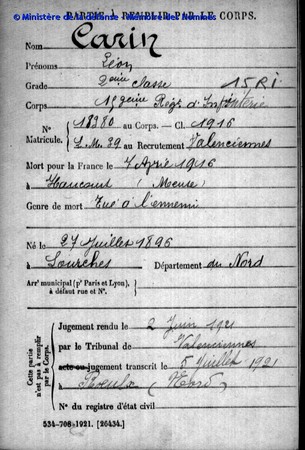 © Ministère de la défense - Mémoire des hommes
PARTIE À REMPLIR PAR LE CORPS.
Nom Carin
Prénoms Léon
Grade 2eme classe 15 RI
Corps 15eme Régt d'Infanterie
N° Matricule. 18380 au Corps. — Cl. 1916
L.M. 39 au Recrutement Valenciennes
Mort pour la France le 7 Avril 1916
à Haucourt (Meuse)
Genre de mort Tué à l'ennemi
Né le 27 Juillet 1896
à Lourches Département du Nord
Arr' municipal (p' Paris et Lyon), à défaut rue et N°.
Cette partie n'est pas à remplir par le Corps.
Jugement rendu le 2 Juin 1921
par le Tribunal de Valenciennes
acte ou jugement transcrit le 5 Juillet 1921
à (Nord)
N° du registre d'état civil
534-708-1921. [26434.]